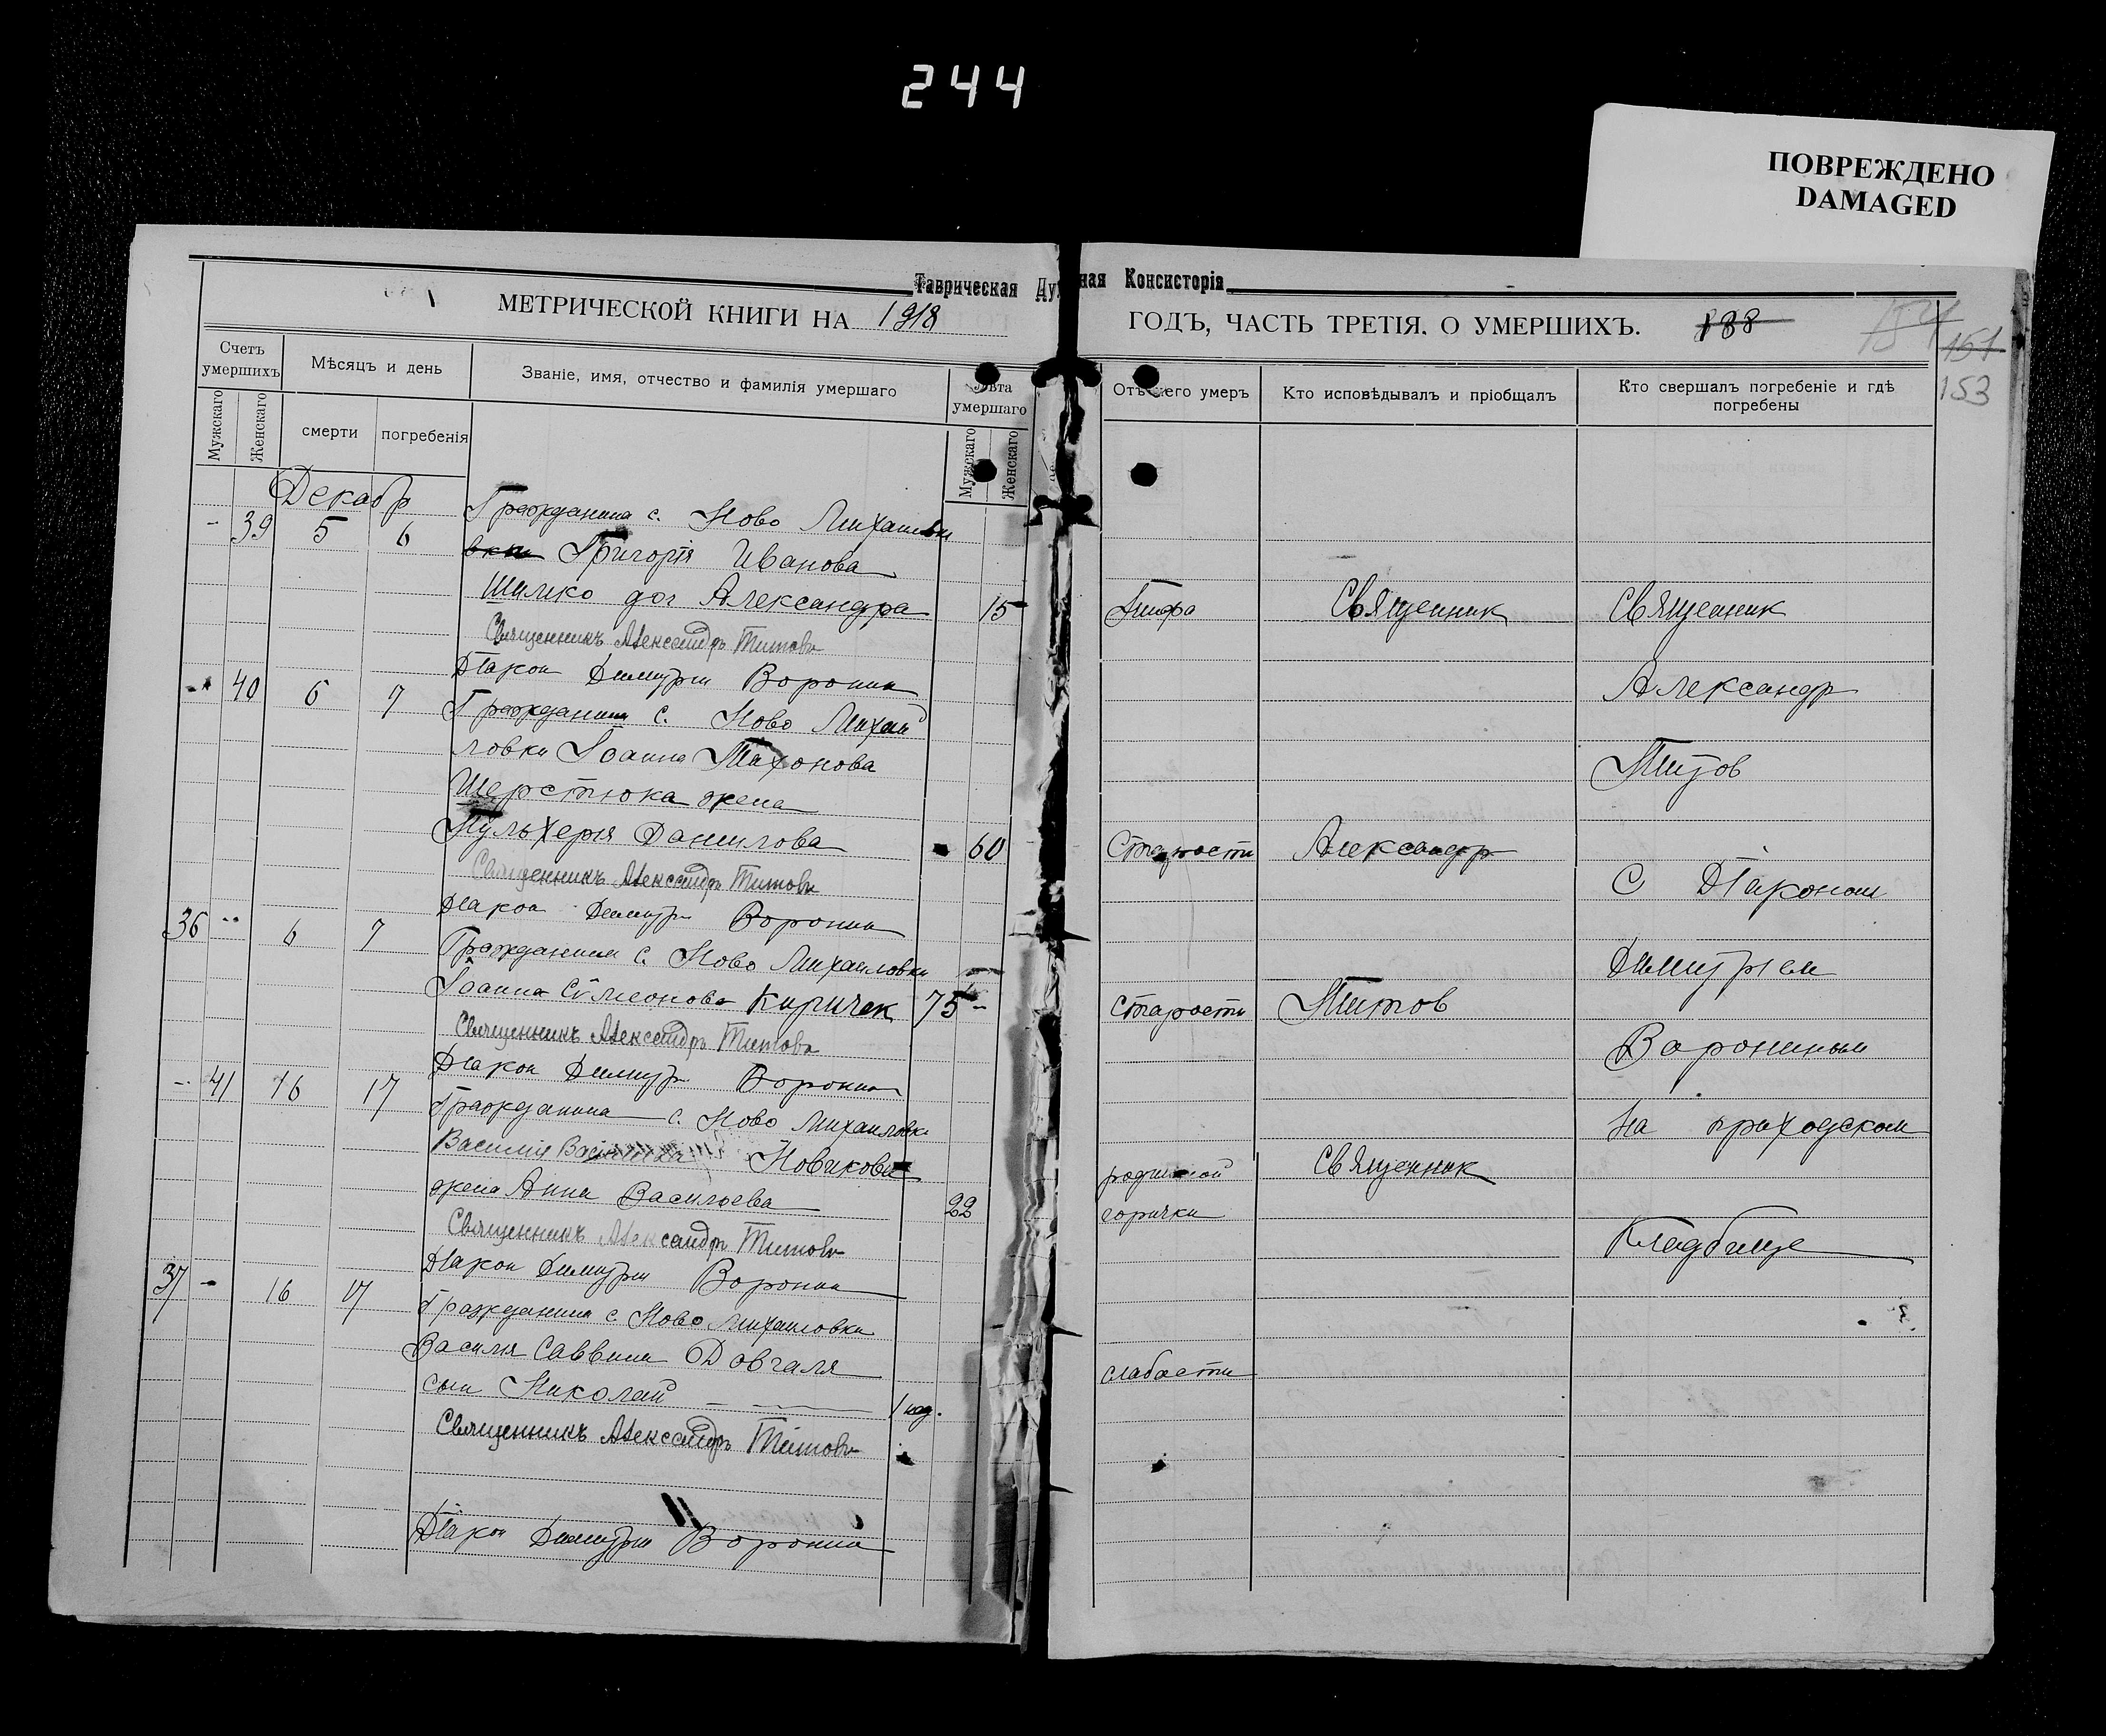 244
ПОВРЕЖДЕНО
DAMAGED
Таврическая Духовная Консисторія
МЕТРИЧЕСКОЙ КНИГИ НА 1918
ГОДЪ, ЧАСТЬ ТРЕТІЯ. О УМЕРШИХЪ. 188
151
153
Счетъ умершихъ
Мужскаго
Женскаго
Мѣсяцъ и день
смерти
погребенія
Званіе, имя, отчество и фамилія умершаго
Лѣта умершаго
Мужскаго
Женскаго
Отъ чего умеръ
Кто исповѣдывалъ и пріобщалъ
Кто свершалъ погребеніе и гдѣ погребены
Декабр
- 39 5 6 Гражданина с. Ново Михайловки
Григорія Иванова
Шилко доч Александра 15
Священникъ Александръ Титовъ
Діакон Димитрий Воронин
- 40 6 7 Гражданина с. Ново Михай
ловки Іоанна Тихонова
Шерстюка жена
Пульхерія Данилова - 60
Священникъ Александръ Титовъ
Діакон Димитр Воронин
36 - 6 7 Гражданина с. Ново Михайловки
Іоанна Сѵмеонова Киричек 75 -
Священникъ Александръ Титовъ
Діакон Димитр Воронин
- 41 16 17 Гражданина с. Ново Михайловк
Василия Новикова
жена Анна Васильева 22
Священникъ Александръ Титовъ
Діакон Димитрий Воронин
37 - 16 17 Гражданина с Ново Михайловки
Василия Саввина Довгаля
сын Николай 1 год.
Священникъ Александръ Титовъ
Діакон Димитрий Воронин
Тифа
Старости
Старости
родильной
горячки
слабости
Священник
Александр
Титов
Священник
Священник
Александр
Титов
С Діаконом
Димитрием
Ворониным
На приходском
Кладбище